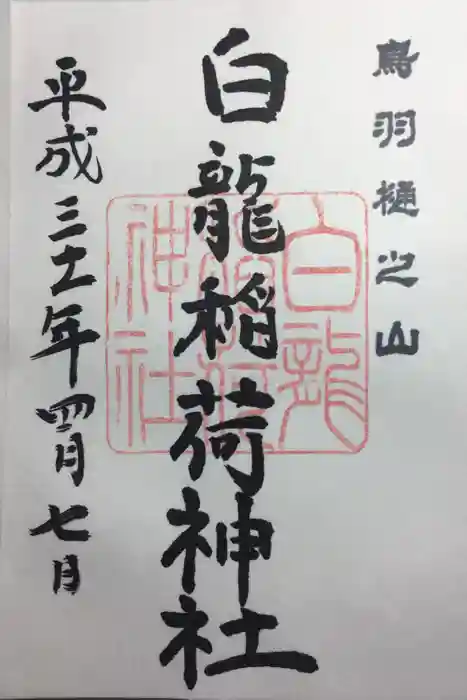 鳥羽樋之山
白龍稲荷神社
白龍稲荷神社
平成三十一年四月七日